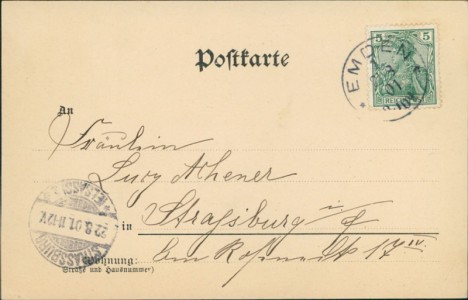 Postkarte
5 5
EMDEN
An
Fräulein
Lucy Athener
in Strassburg i/E
Am
17 IV.
Wohnung:
(Straße und Hausnummer)
STRASSBURG
22.8.01.11-12V.